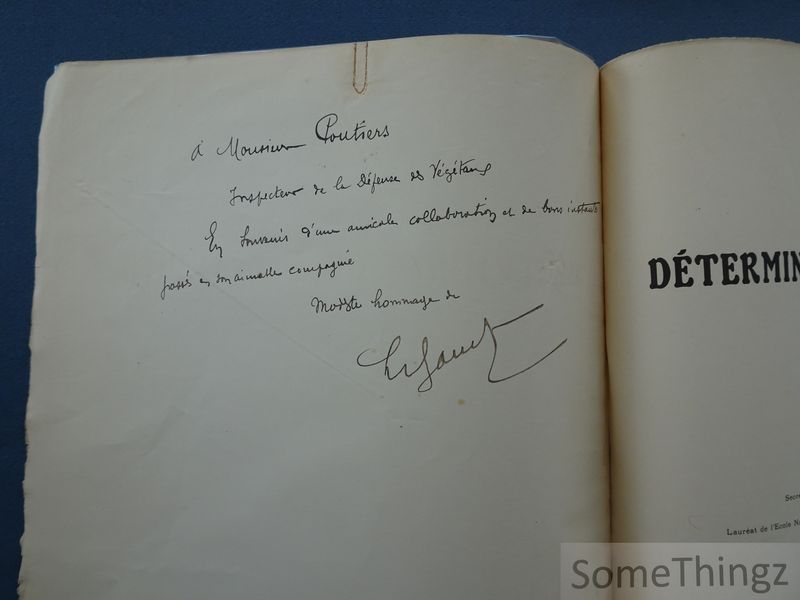 à Monsieur Poutiers
Inspecteur de la Défense des Végétaux
En Souvenir d'une amicale collaboration et de bons instants
passés en son aimable compagnie
Modeste hommage de
DÉTERMIN
Secré
Lauréat de l'Ecole Na
SomeThingz